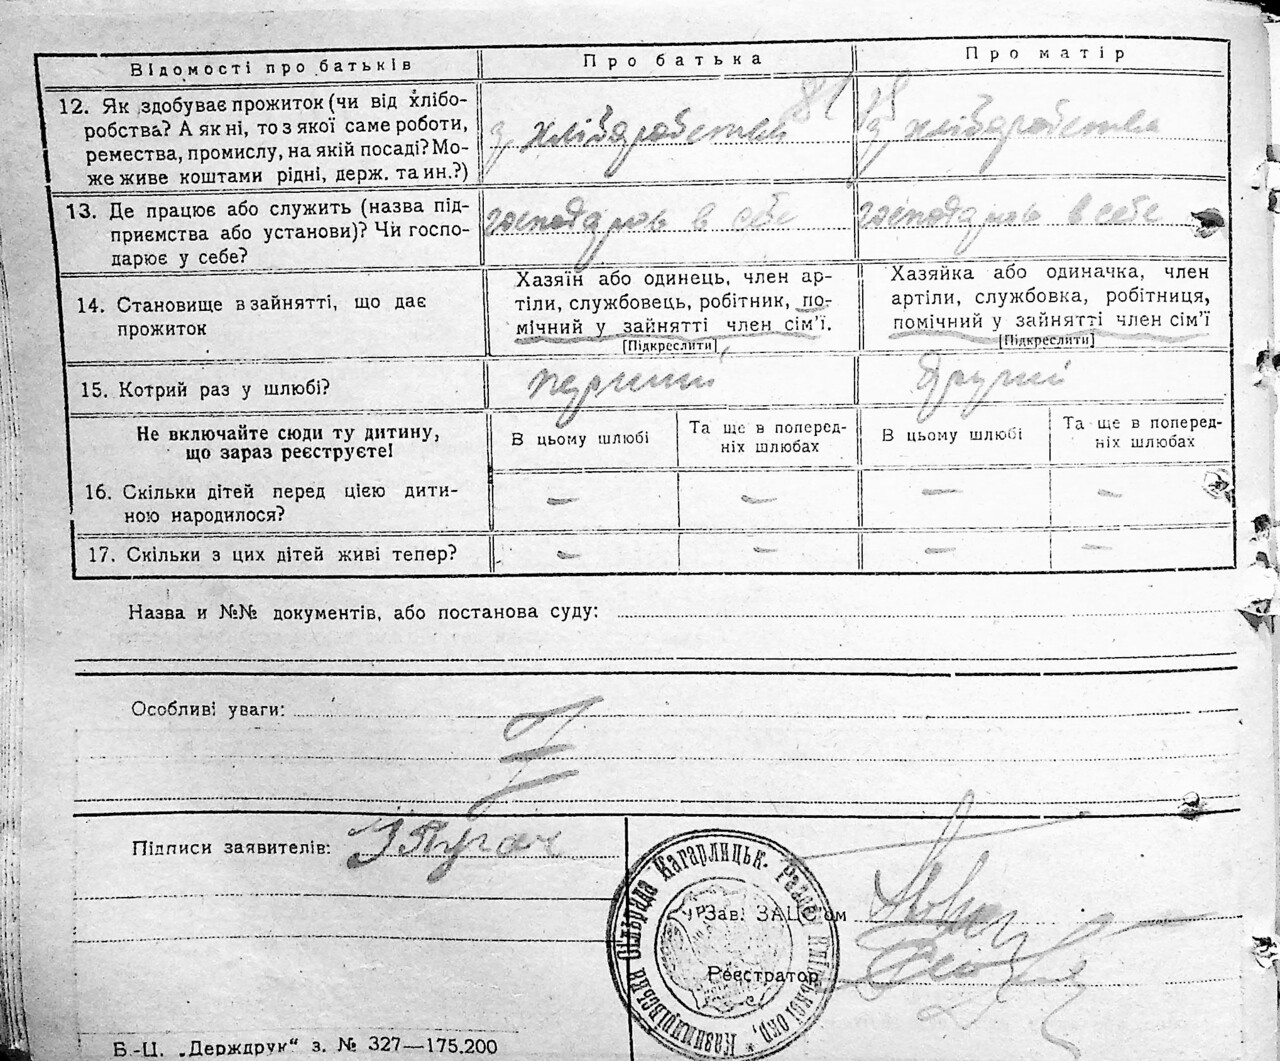 Відомості про батьків Про батька Про матір
12. Як здобуває прожиток (чи від хлібо-
робства? А як ні, то з якої саме роботи,
ремества, промислу, на якій посаді? Мо-
же живе коштами рідні, держ. та ин.?)
з хліборобства з хліборобства
13. Де працює або служить (назва під-
приємства або установи)? Чи госпо-
дарює у себе?
господарює в себе господарює в себе
14. Становище в зайнятті, що дає
прожиток
Хазяїн або одинець, член ар-
тіли, службовець, робітник, по-
мічний у зайнятті член сім'ї.
[Підкреслити]
Хазяйка або одиначка, член
артіли, службовка, робітниця,
помічний у зайнятті член сім'ї
[Підкреслити]
15. Котрий раз у шлюбі? перший другий
Не включайте сюди ту дитину,
що зараз реєструєте!
В цьому шлюбі Та ще в поперед-
ніх шлюбах В цьому шлюбі Та ще в поперед-
ніх шлюбах
16. Скільки дітей перед цією дити-
ною народилося? — — — —
17. Скільки з цих дітей живі тепер? — — — —
Назва и №№ документів, або постанова суду:
Особливі уваги:
Підписи заявителів:
Зав. ЗАЦСом
Реєстратор
Сільрада Кагарлицьк.
Б.-Ц. „Держдрук“ з. № 327—175.200